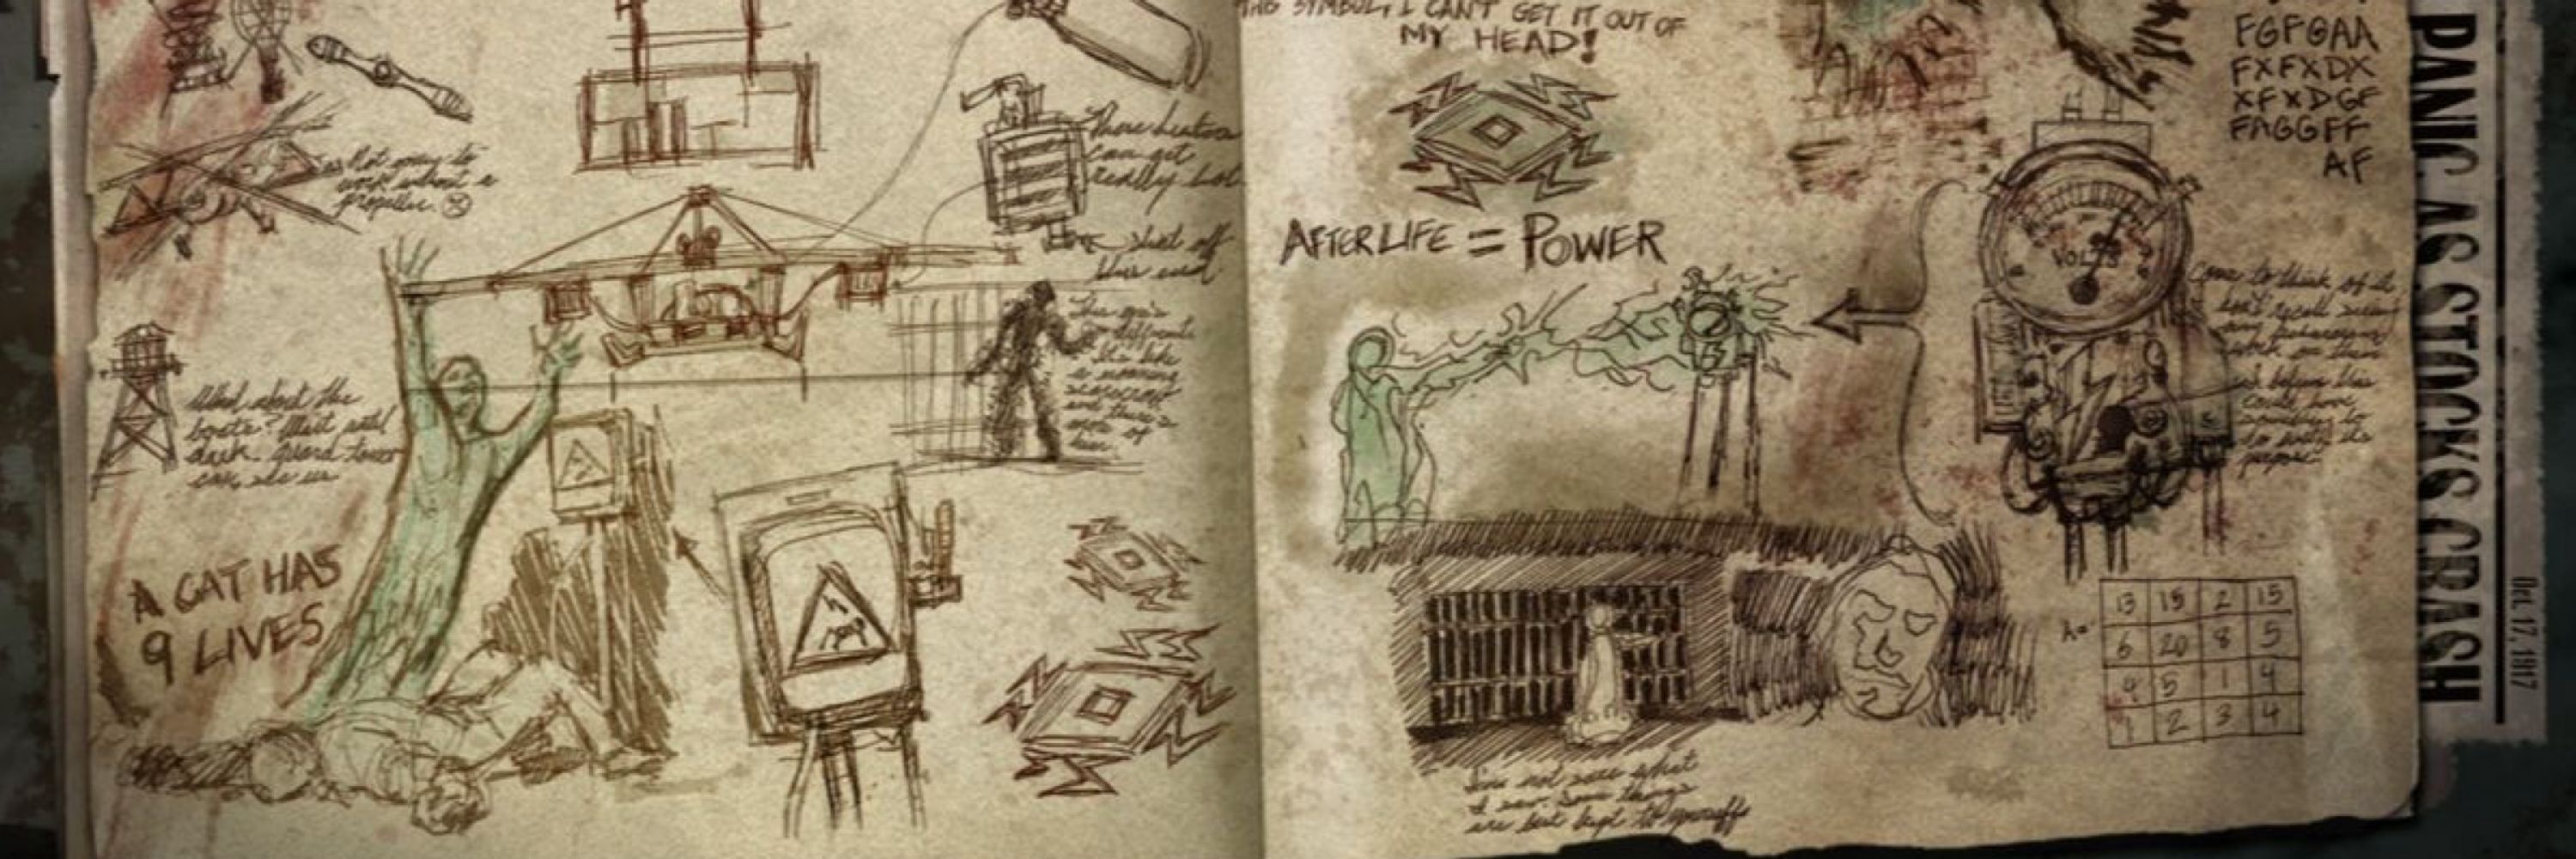 Not easy to
work without a
propeller.
These heaters
can get
really hot
shut off
This guy's
so different
It's like
a moving
scarecrow
and there's
more of
him.
What about the
boats? Wait until
dark. guard tower
can see us
A CAT HAS
9 LIVES
THIS SYMBOL, I CAN'T GET IT OUT OF
MY HEAD!
AFTERLIFE = POWER
VOLTS
FGFGAA
FXFXDX
XFXDGF
FAGGFF
AF
Come to think of it
I don't recall seeing
any
work on them
I believe this
could have
something to
do with its
purpose
A=
13 15 2 15
6 20 8 5
4 5 1 4
1 2 3 4
I'm not sure what
I saw. Some things
are best kept to yourself
PANIC AS STOCKS CRASH
Oct. 17, 1917